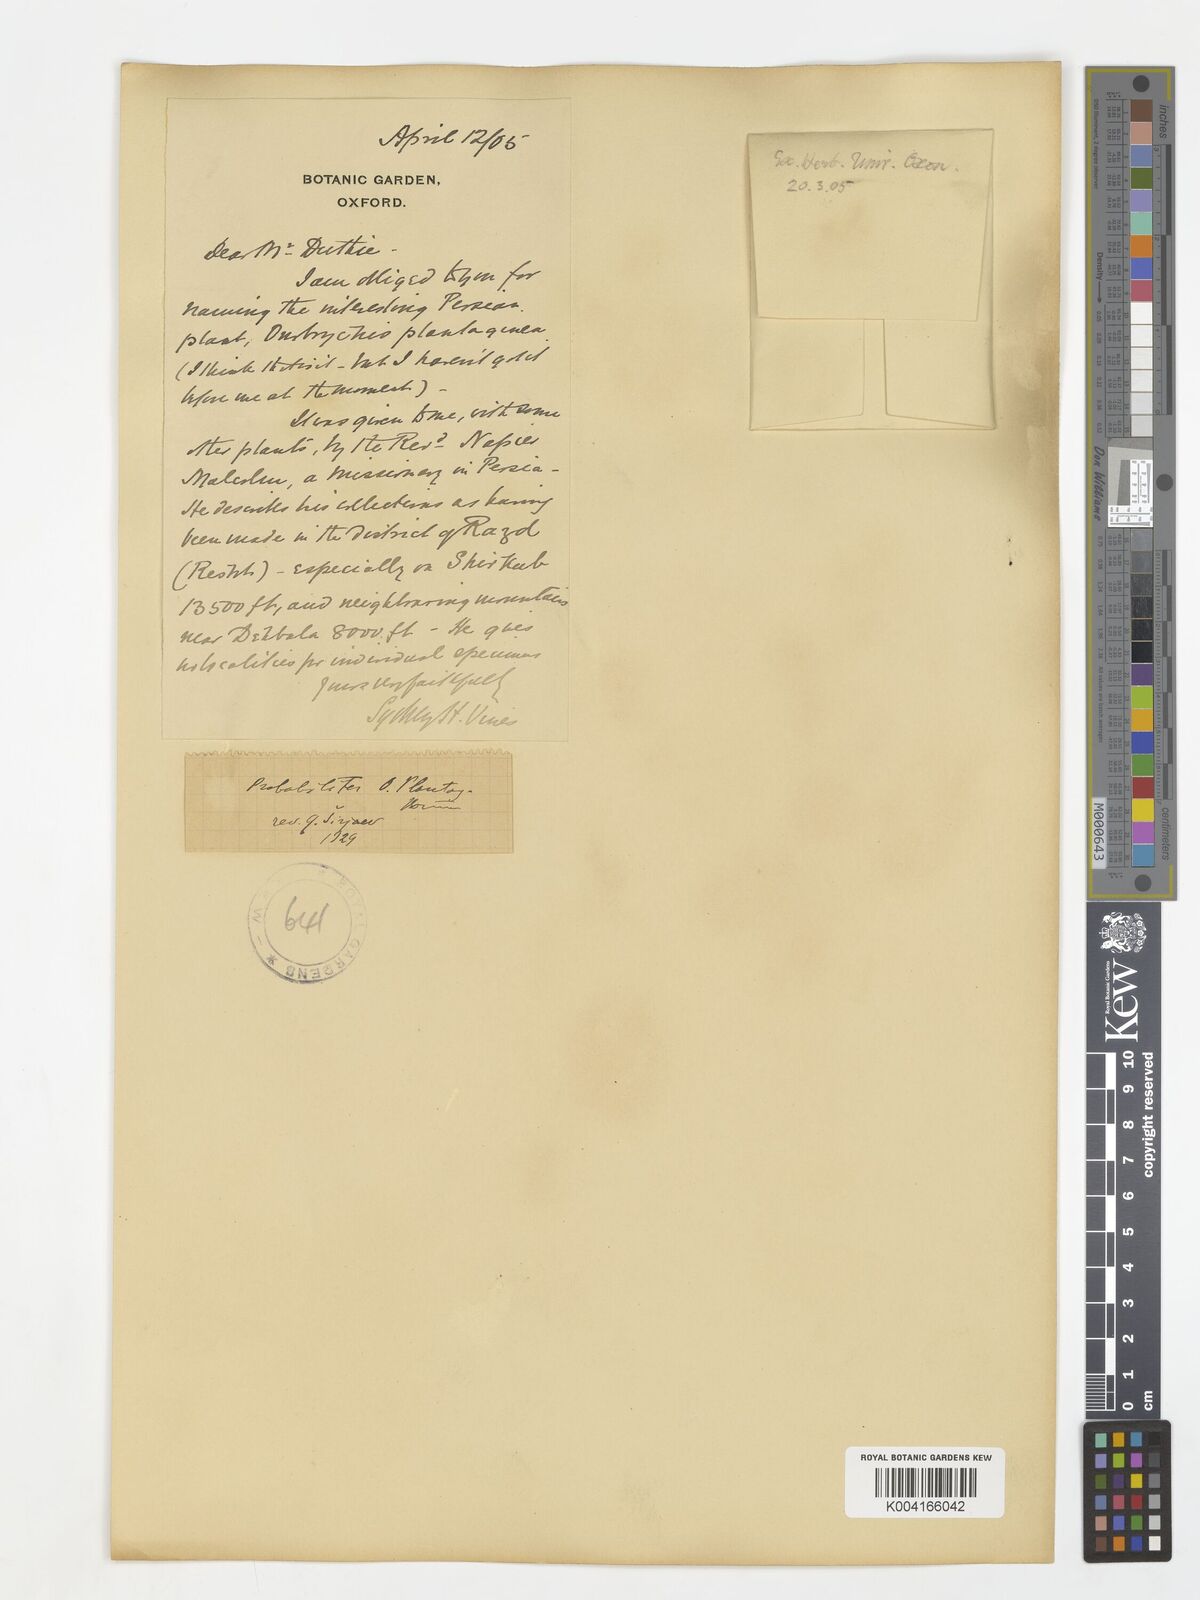 April 12/05
BOTANIC GARDEN,
OXFORD.
Dear Mr Duthie -
I am obliged to you for
naming the interesting Persian
plant, Onobrychis plantaginea
(I think that is it - but I haven't got it
before me at the moment) -
It was given to me, with some
other plants, by the Revd Napier
Malcolm, a missionary in Persia -
He describes his collections as having
been made in the District of Yazd
- especially on Shirkuh
13500 ft, and neighbouring mountains
near Dehbala 8000 ft - He gives
no localities for individual specimens
Yours very faithfully
Sydney H. Vines
Ex. Herb. Univ. Oxon.
20.3.05
Probabiliter O. Plantag.
rev. G. Širjaev
1929
ROYAL GARDENS
641
ROYAL BOTANIC GARDENS KEW
K004166042
inches
centimeters
Density
Don Williams
M000643
Royal Botanic Gardens
Kew
0 1 2 3 4 5 6 7 8 9 10
cm
copyright reserved